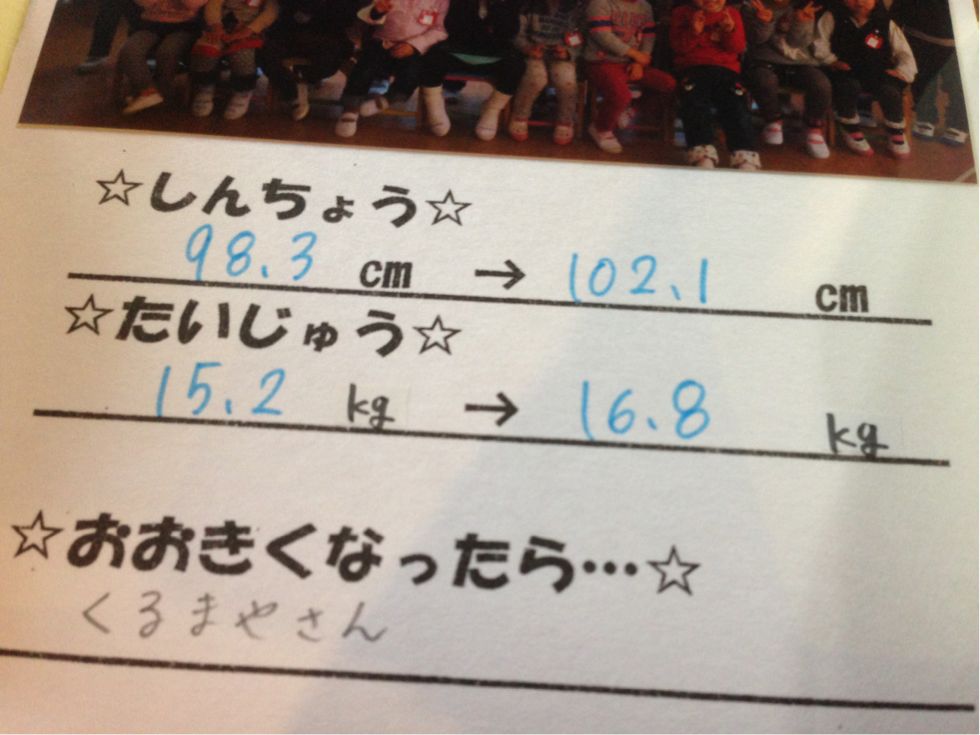 ☆しんちょう☆
98.3 cm → 102.1 cm
☆たいじゅう☆
15.2 kg → 16.8 kg
☆おおきくなったら…☆
くるまやさん